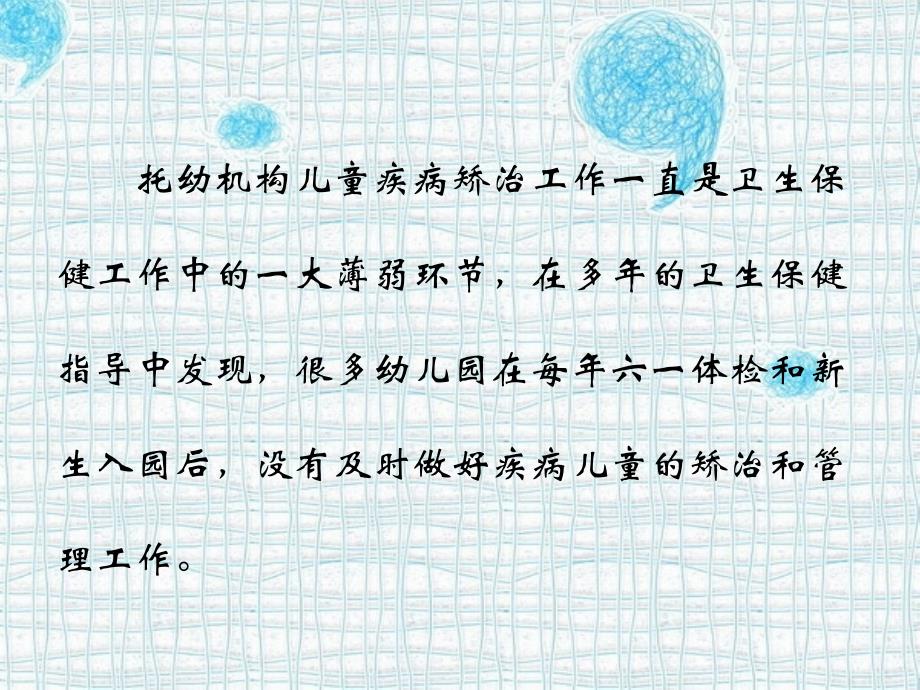 托幼机构儿童疾病矫治工作一直是卫生保
健工作中的一大薄弱环节，在多年的卫生保健
指导中发现，很多幼儿园在每年六一体检和新
生入园后，没有及时做好疾病儿童的矫治和管
理工作。